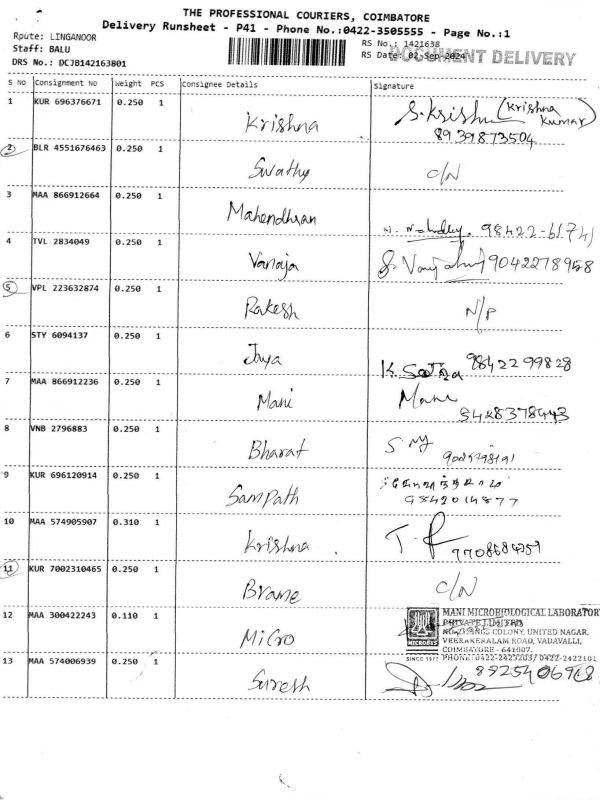 THE PROFESSIONAL COURIERS, COIMBATORE
Delivery Runsheet - P41 - Phone No.:0422-3505555 - Page No.:1
Route: LINGANOOR
RS No.: 1421638
Staff: BALU
RS Date: 02-Sep-2024
DOCUMENT DELIVERY
DRS No.: DCJB142163801
S No Consignment No Weight PCS Consignee Details Signature
1 KUR 696376671 0.250 1 Krishna S. Krishna (Krishna Kumar)
8939873504
2 BLR 4551676463 0.250 1 Swathy C/N
3 MAA 866912664 0.250 1 Mahendhran 98422-61741
4 TVL 2834049 0.250 1 Vanaja 9042278958
5 VPL 223632874 0.250 1 Rakesh N/P
6 STY 6094137 0.250 1 Jaya 98422 99828
7 MAA 866912236 0.250 1 Mani Mani
8 VNB 2796883 0.250 1 Bharat
9 KUR 696120914 0.250 1 Sampath
9842014877
10 MAA 574905907 0.310 1 Krishna
11 KUR 7002310465 0.250 1 Brane C/N
12 MAA 300422243 0.110 1 Micro
MANI MICROBIOLOGICAL LABORATORY
PRIVATE LIMITED
COLONY, UNITED NAGAR,
VEERAKERALAM ROAD, VADAVALLI,
COIMBATORE - 641007.
SINCE 1977 PHONE: 0422-2423203/ 0422-2422101
13 MAA 574006939 0.250 1 Suresh